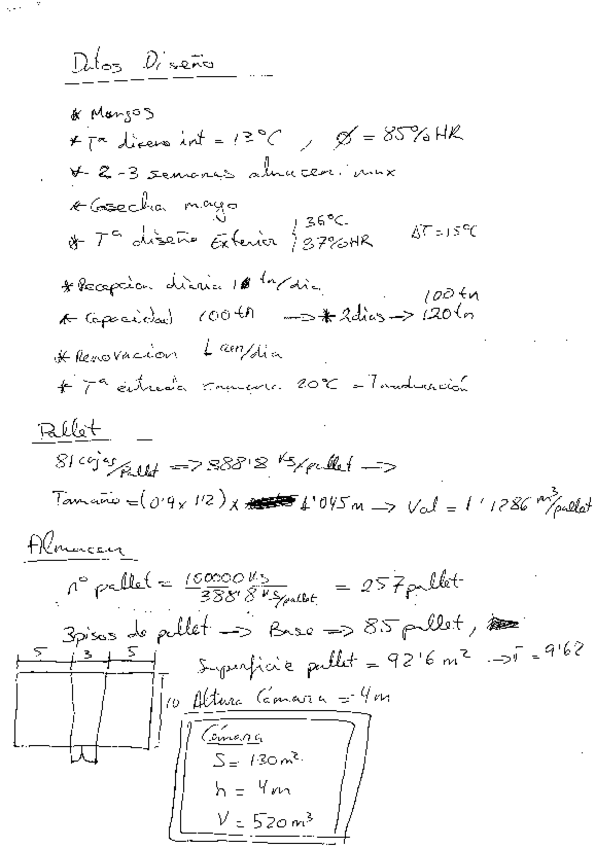 Datos Diseño
* Mangos
* Tª diseno int = 13°C , Ø = 85% HR
* 2-3 semanas almacen. max
* Cosecha mayo
* Tª diseño Exterior 36°C. 37% HR ΔT = 15°C
* Recepcion diaria tn/dia
* Capacidad 100 tn —> * 2 dias —> 100 tn 120 tn
* Renovacion /dia
* Tª entrada 20°C = Tmaduración
Pallet
81 cajas/pallet => 388'8 Ks/pallet —>
Tamaño = (0'9 x 1'2) x 1'045 m —> Vol = 1'1286 m³/pallet
Almacen
nº pallet = 100000 Ks / 388'8 Ks/pallet = 257 pallet
3 pisos de pallet —> Base —> 85 pallet,
5 3 5
Superficie pallet = 92'6 m² —> = 9'62
10 Altura Cámara = 4 m
Cámara
S = 130 m²
h = 4 m
V = 520 m³